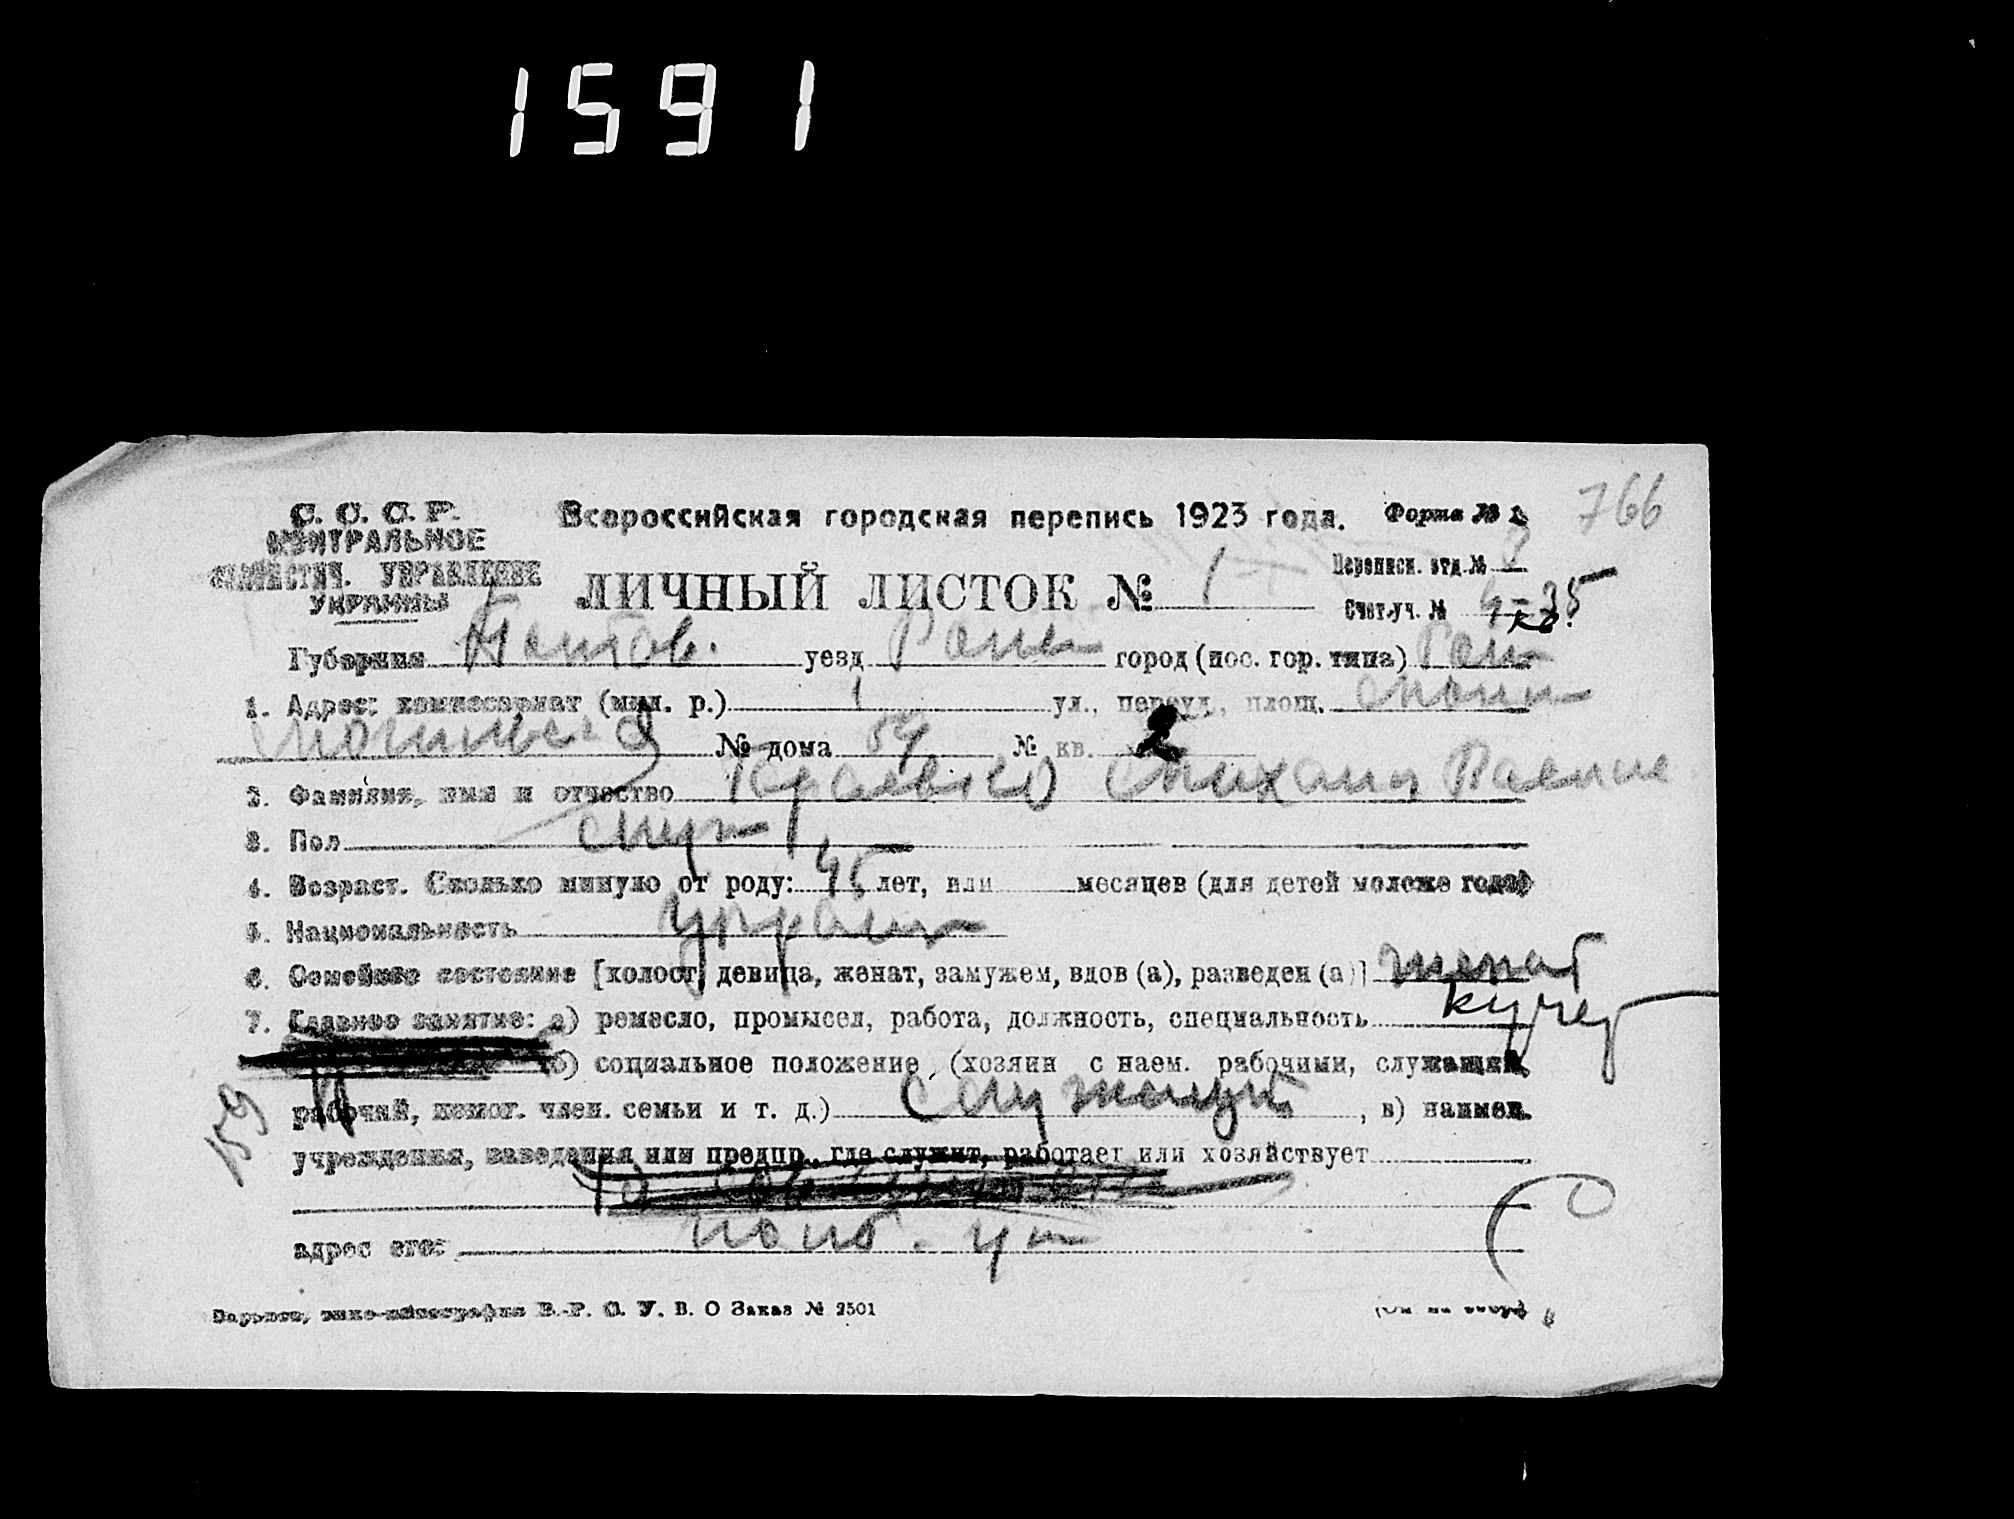 1591
766
С. С. С. Р.
ЦЕНТРАЛЬНОЕ
СТАТИСТИЧ. УПРАВЛЕНИЕ
УКРАИНЫ
Всероссийская городская перепись 1923 года. Форма № 2
ЛИЧНЫЙ ЛИСТОК № 1
Переписн. отд. №
Счет. уч. №
Губерния Полтов. уезд Ромен город (пос. гор. типа) Ром
1. Адрес: комиссариат (мил. р.) 1 ул., переул., площ.
№ дома 54 № кв. 2
2. Фамилия, имя и отчество Михаил
3. Пол муж
4. Возраст. Сколько минуло от роду: 45 лет, или месяцев (для детей моложе года)
5. Национальность украин
6. Семейное состояние [холост, девица, женат, замужем, вдов (а), разведен (а)] женат
7. Главное занятие: а) ремесло, промысел, работа, должность, специальность кучер
б) социальное положение (хозяин с наем. рабочими, служащий,
рабочий, помог. член. семьи и т. д.) Служащий, в) наимен.
159
учреждения, заведения или предпр., где служит, работает или хозяйствует
адрес его:
Харьков, типо-цинкография В. Р. С. У. В. О Заказ № 2501